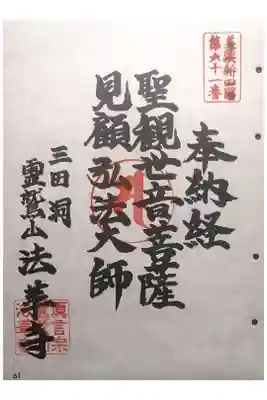 美濃新四國
第六十一番
奉納経
聖観世音菩薩
見顧弘法大師
三田洞
靈鷲山法華寺
眞言宗
61